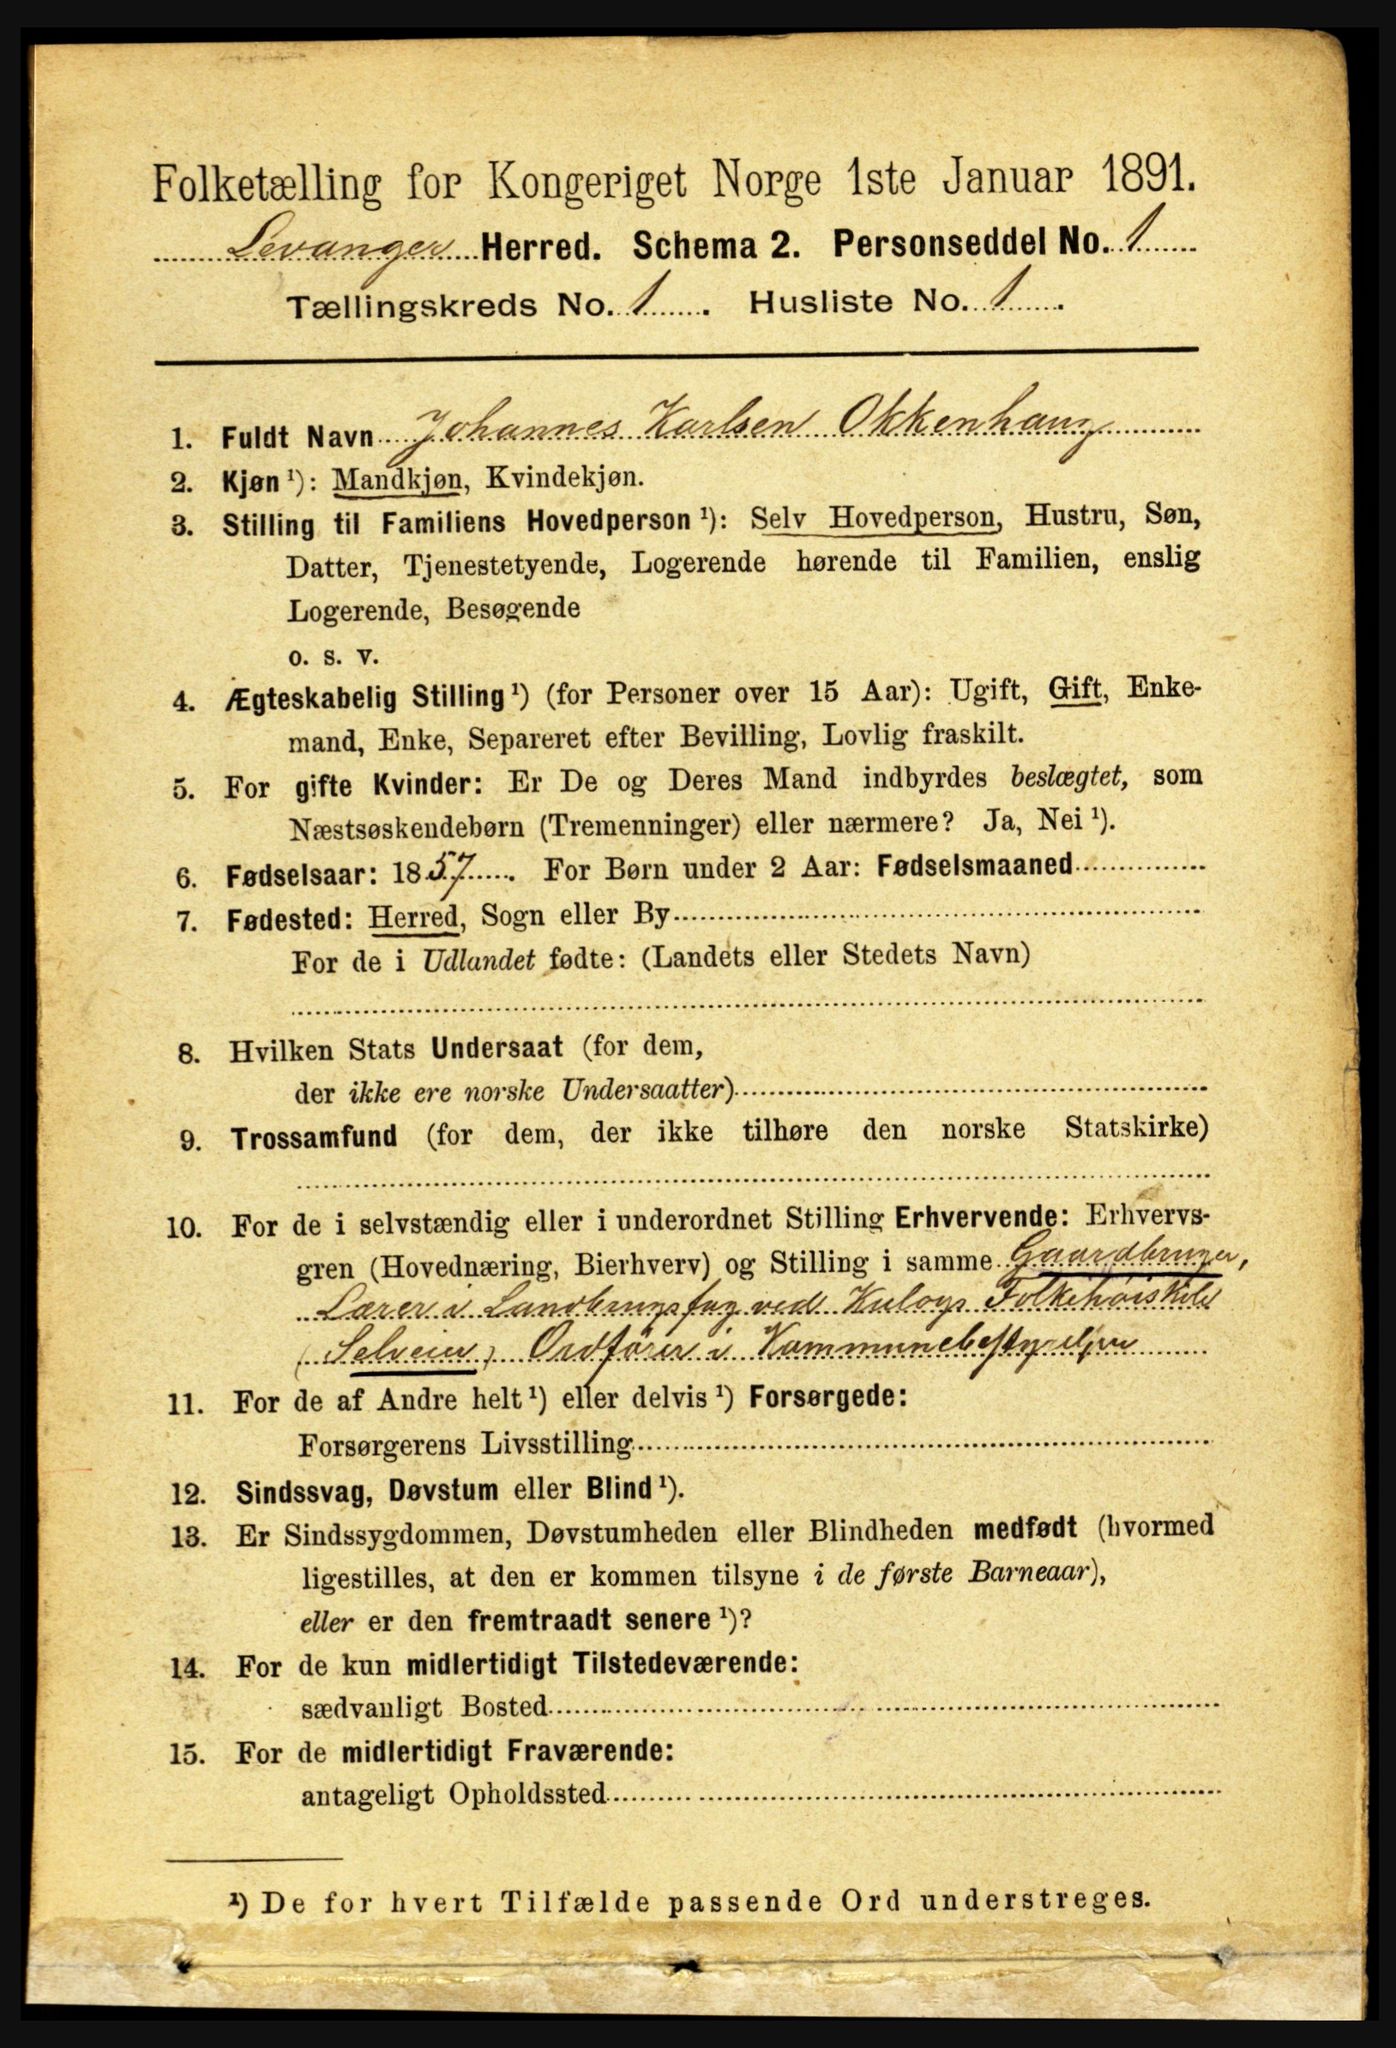 Folketælling for Kongeriget Norge 1ste Januar 1891.
Levanger Herred. Schema 2. Personseddel No. 1
Tællingskreds No. 1. Husliste No. 1.
1. Fuldt Navn Johannes Karlsen Okkenhaug
2. Kjøn ¹): Mandkjøn, Kvindekjøn.
3. Stilling til Familiens Hovedperson ¹): Selv Hovedperson, Hustru, Søn,
Datter, Tjenestetyende, Logerende hørende til Familien, enslig
Logerende, Besøgende
o. s. v.
4. Ægteskabelig Stilling ¹) (for Personer over 15 Aar): Ugift, Gift, Enke-
mand, Enke, Separeret efter Bevilling, Lovlig fraskilt.
5. For gifte Kvinder: Er De og Deres Mand indbyrdes beslægtet, som
Næstsøskendebørn (Tremenninger) eller nærmere? Ja, Nei ¹).
6. Fødselsaar: 1857. For Børn under 2 Aar: Fødselsmaaned
7. Fødested: Herred, Sogn eller By
For de i Udlandet fødte: (Landets eller Stedets Navn)
8. Hvilken Stats Undersaat (for dem,
der ikke ere norske Undersaatter)
9. Trossamfund (for dem, der ikke tilhøre den norske Statskirke)
10. For de i selvstændig eller i underordnet Stilling Erhvervende: Erhvervs-
gren (Hovednæring, Bierhverv) og Stilling i samme Gaardbruger,
Lærer i Landbrugsfag ved Folkehøiskole
(Selveier) Ordfører i Kommunebestyrelsen
11. For de af Andre helt ¹) eller delvis ¹) Forsørgede:
Forsørgerens Livsstilling
12. Sindssvag, Døvstum eller Blind ¹).
13. Er Sindssygdommen, Døvstumheden eller Blindheden medfødt (hvormed
ligestilles, at den er kommen tilsyne i de første Barneaar),
eller er den fremtraadt senere ¹)?
14. For de kun midlertidigt Tilstedeværende:
sædvanligt Bosted
15. For de midlertidigt Fraværende:
antageligt Opholdssted
¹) De for hvert Tilfælde passende Ord understreges.